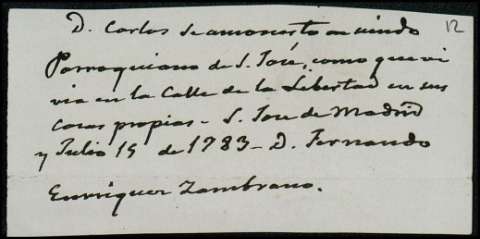 12
D. Carlos se amonestó en siendo
Parroquiano de S. José, como que vi
via en la Calle de la Libertad en sus
casas propias - S. Jose de Madrid
y Julio 15 de 1783 - D. Fernando
Enrriquez Zambrano.